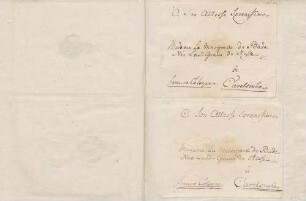 A Son Altesse Serenissime
Madame La Margrave de Bade
Née Landgrave de Hesse
à
Carlsruhe
A Son Altesse Serenissime
Madame La Margrave de Bade
Née Landgrave de Hesse
à
Carlsruhe